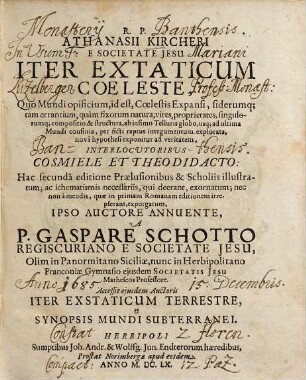 Monasterij R. P. Banthensis
ATHANASII KIRCHERI
E SOCIETATE JESU Mariani
ITER EXTATICUM
COELESTE,
Quo Mundi opificium, id est, Cœlestis Expansi, siderumq;
tam errantium, quàm fixorum natura, vires, proprietates, singulo-
rumq; compositio & structura, ab infimo Telluris globo, usq; ad ultima
Mundi confinia, per ficti raptus integumentum explorata,
novâ hypothesi exponitur ad veritatem,
INTERLOCUTORIBUS
COSMIELE ET THEODIDACTO:
Hac secundâ editione Prælusionibus & Scholiis illustra-
tum; ac schematismis necessariis, qui deerant, exornatum; nec
non à mendis, quæ in primam Romanam editionem irre-
pserant, expurgatum,
IPSO AUCTORE ANNUENTE,
A
P. GASPARE SCHOTTO
REGISCURIANO E SOCIETATE JESU,
Olim in Panormitano Siciliæ, nunc in Herbipolitano
Franconiæ Gymnasio ejusdem SOCIETATIS JESU
Matheseos Professore.
Anno 1685 15. Decembris
Accessit ejusdem Auctoris
ITER EXSTATICUM TERRESTRE,
&
SYNOPSIS MUNDI SUBTERRANEI.
Constat 2 floren.
HERBIPOLI
Sumptibus Joh. Andr. & Wolffg. Jun. Endterorum hæredibus,
Prostat Norimbergæ apud eosdem.
Compact: 12 Paz.
ANNO M. DC. LX.